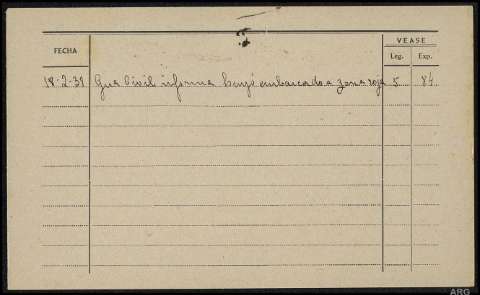 VEASE
FECHA Leg. Exp.
18-2-39 Gua Civil informa huyó embarcado a zona roja 5 84
ARG